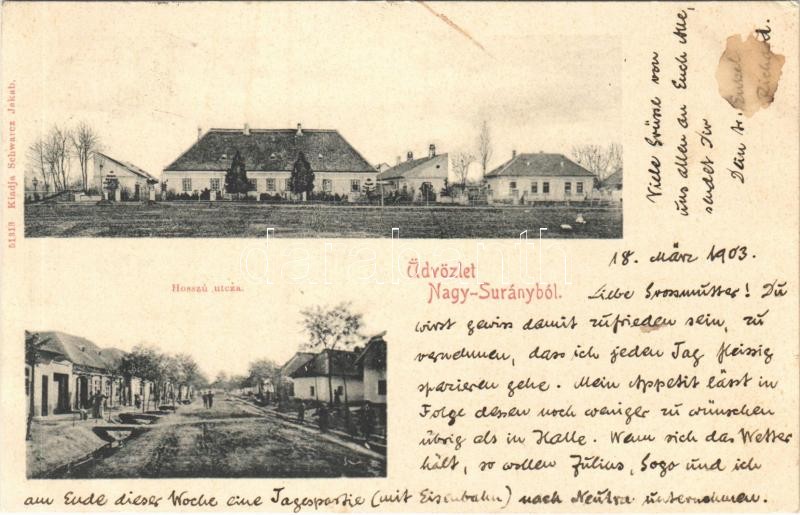 51313 Kiadja Schwarcz Jakab.
Üdvözlet
Nagy-Surányból.
Hosszú utcza.
18. März 1903.
Liebe Grossmutter! Du
wirst gewiss damit zufrieden sein, zu
vernehmen, dass ich jeden Tag fleissig
spazieren gehe. Mein Appetit lässt in
Folge dessen noch weniger zu wünschen
übrig als in Halle. Wenn sich das Wetter
hält, so wollen Julius, Gogo und ich
am Ende dieser Woche eine Tagespartie (mit Eisenbahn) nach Neutra unternehmen.
Viele Grüsse von
uns allen an Euch Alle,
sendet Dir
Dein tr. Enkel
Richard.